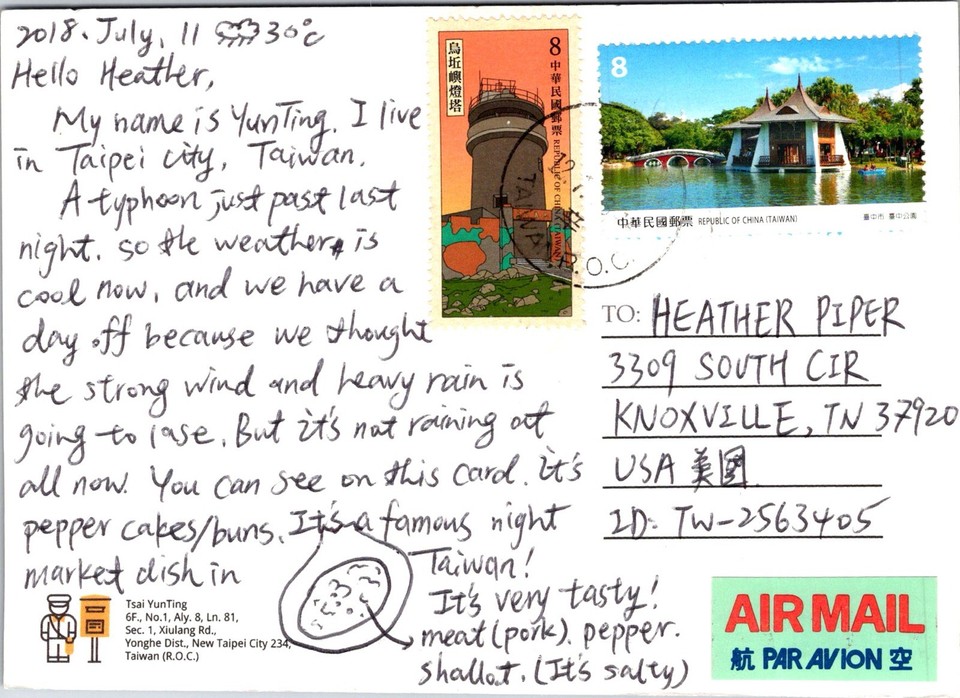 2018. July. 11 30°c
Hello Heather,
My name is YunTing. I live
in Taipei city, Taiwan.
A typhoon just past last
night. so the weather is
cool now, and we have a
day off because we thought
the strong wind and heavy rain is
going to lase. But it's not raining at
all now. You can see on this card. it's
pepper cakes/buns. It's a famous night
market dish in
Taiwan!
It's very tasty!
meat (pork). pepper.
shallot. (It's salty)
Tsai YunTing
6F., No.1, Aly. 8, Ln. 81,
Sec. 1, Xiulang Rd.,
Yonghe Dist., New Taipei City 234,
Taiwan (R.O.C.)
烏坵嶼燈塔
8
中華民國郵票
REPUBLIC OF CHINA (TAIWAN)
R.O.C.
8
中華民國郵票 REPUBLIC OF CHINA (TAIWAN)
臺中市 臺中公園
TO: HEATHER PIPER
3309 SOUTH CIR
KNOXVILLE, TN 37920
USA 美國
ID: TW-2563405
AIR MAIL
航 PAR AVION 空